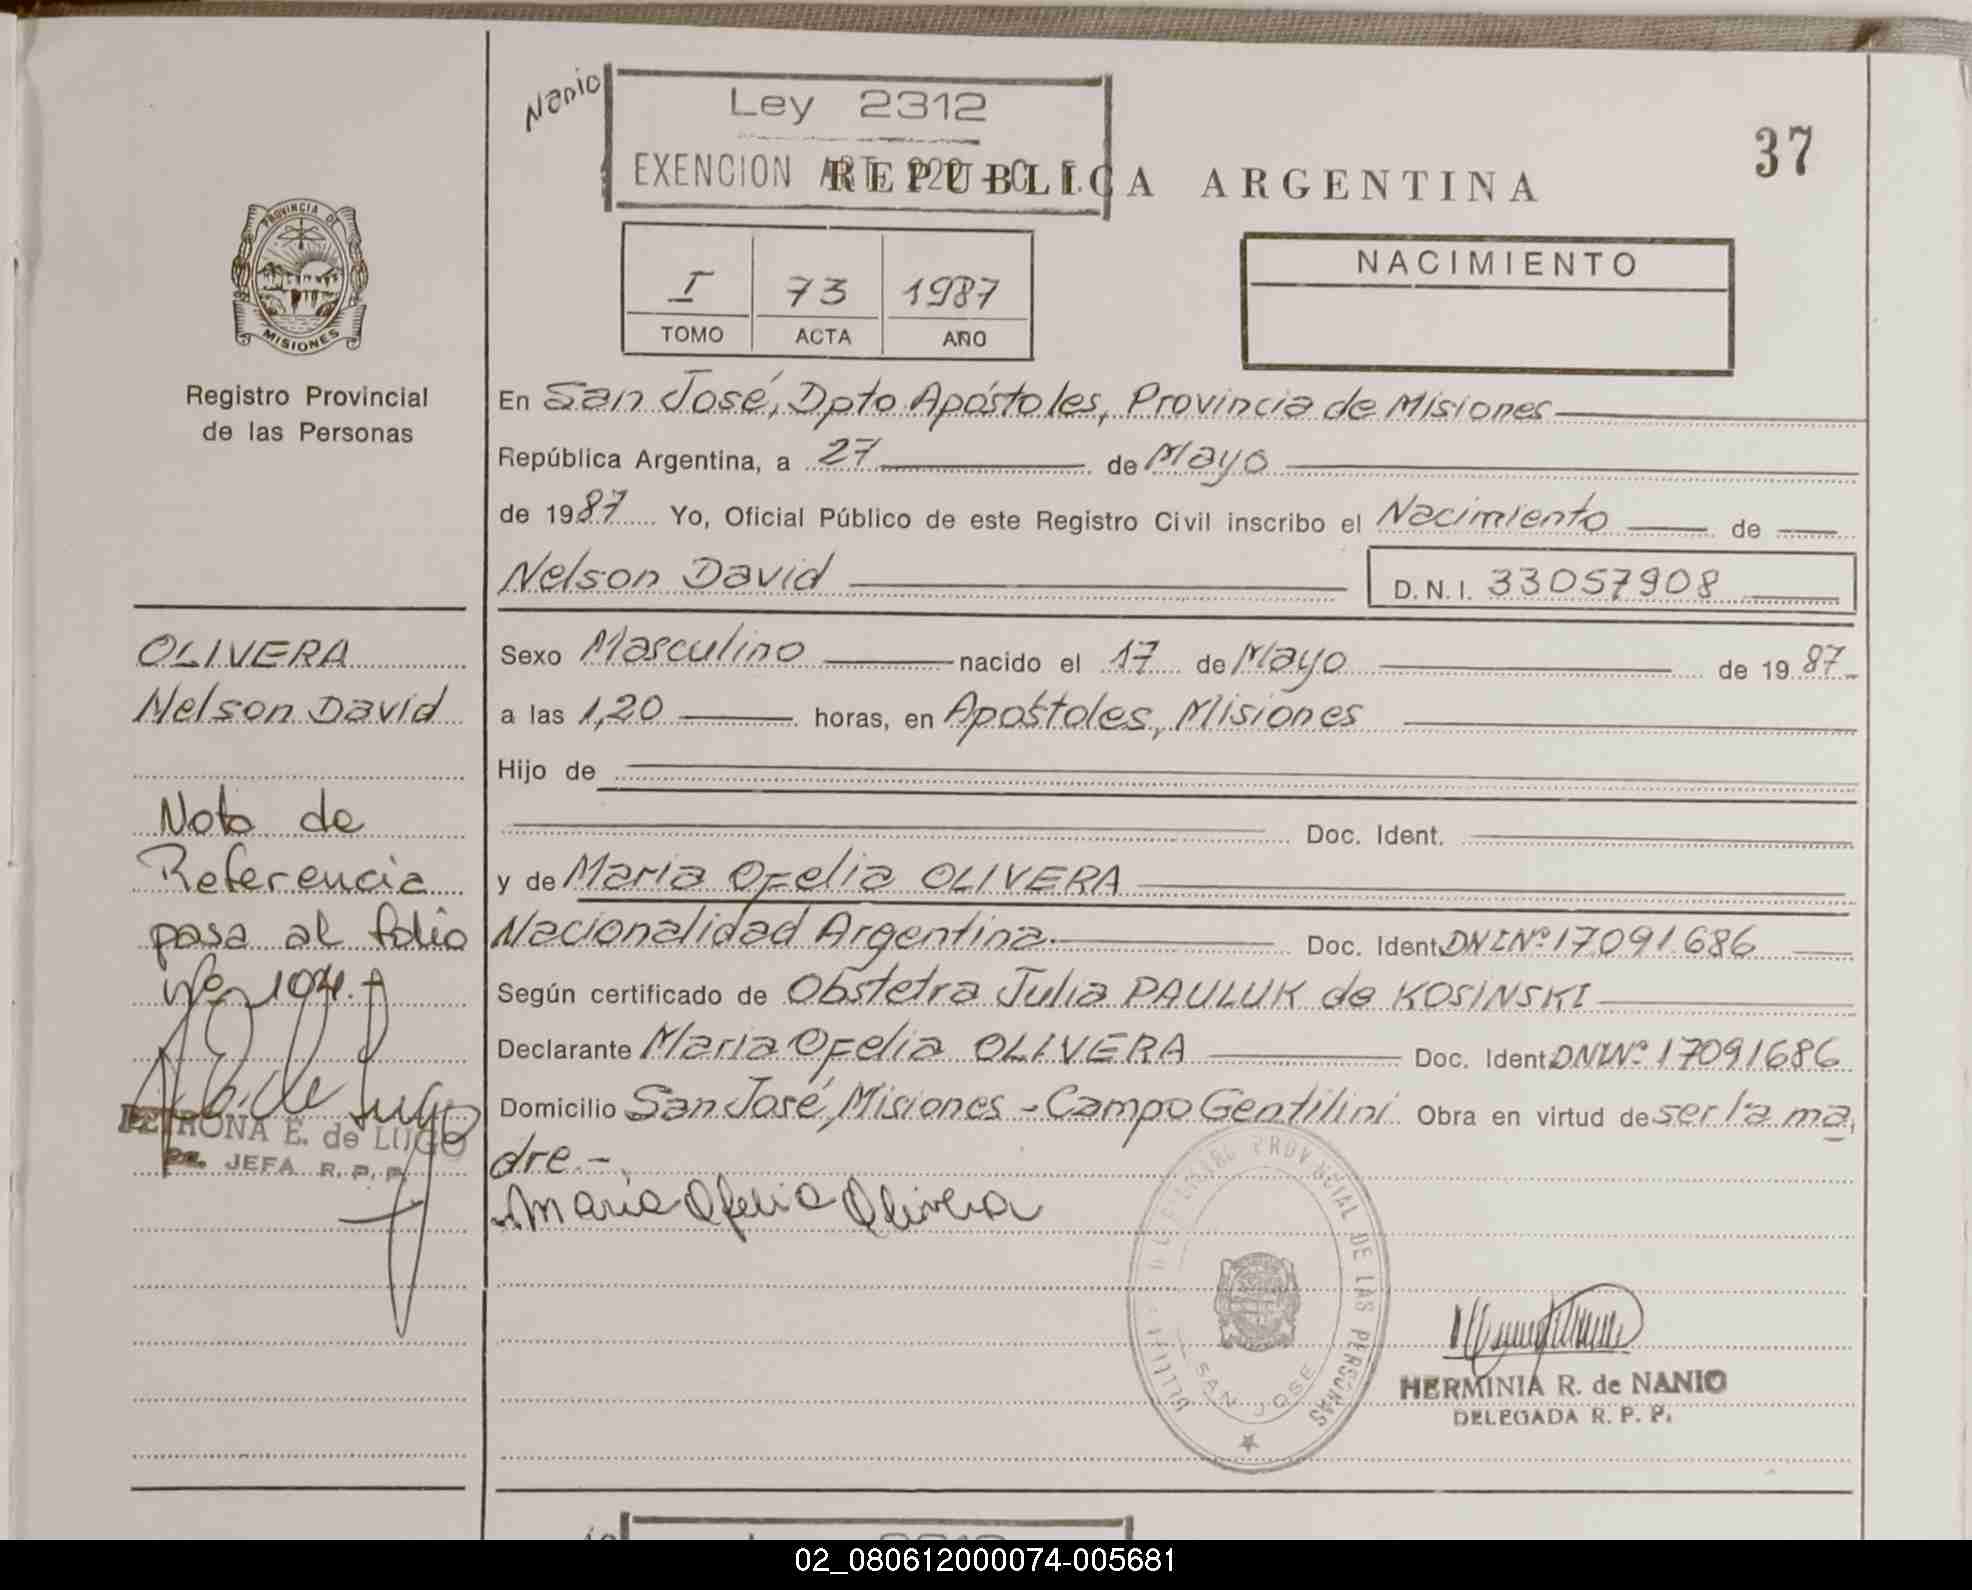 Nanio
Ley 2312
EXENCION ART. 222 - C. F.
REPUBLICA ARGENTINA
37
PROVINCIA DE
MISIONES
Registro Provincial
de las Personas
I 73 1987
TOMO ACTA AÑO
NACIMIENTO
En San José, Dpto Apóstoles, Provincia de Misiones
República Argentina, a 27 de Mayo
de 1987 Yo, Oficial Público de este Registro Civil inscribo el Nacimiento de
Nelson David D.N.I. 33057908
OLIVERA
Nelson David
Nota de
Referencia
pasa al folio
Nº 104.
PETRONA E. de LUGO
JEFA R. P. P.
Sexo Masculino nacido el 17 de Mayo de 1987
a las 1,20 horas, en Apóstoles, Misiones
Hijo de
Doc. Ident.
y de Maria Ofelia OLIVERA
Nacionalidad Argentina. Doc. Ident DNI Nº 17.091.686
Según certificado de Obstetra Julia PAULUK de KOSINSKI
Declarante Maria Ofelia OLIVERA Doc. Ident DNI Nº 17091686
Domicilio San José, Misiones - Campo Gentilini Obra en virtud de ser la ma
dre.-
Maria Ofelia Olivera
PROVINCIAL DE LAS PERSONAS
SAN JOSE
HERMINIA R. de NANIO
DELEGADA R. P. P.
02_080612000074-005681